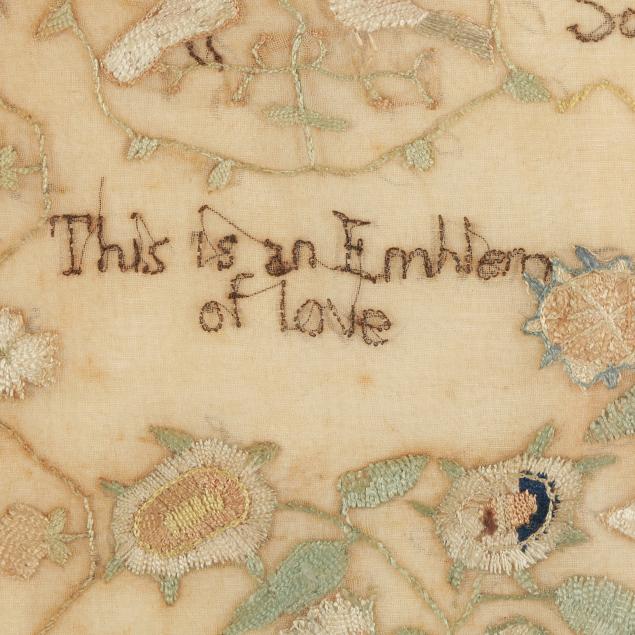 This is an Emblem
of love